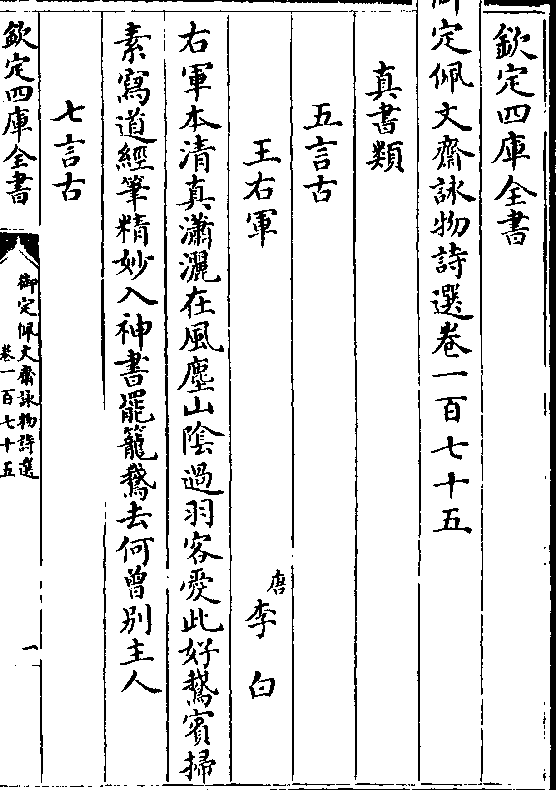 欽定四庫全書
御定佩文齋詠物詩選卷一百七十五
真書類
五言古
王右軍
唐 李白
右軍本清真瀟灑在風塵山陰過羽客愛此好鵞賓掃
素寫道經筆精妙入神書罷籠鵞去何曾别主人
七言古
欽定四庫全書
御定佩文齋詠物詩選
卷一百七十五
一